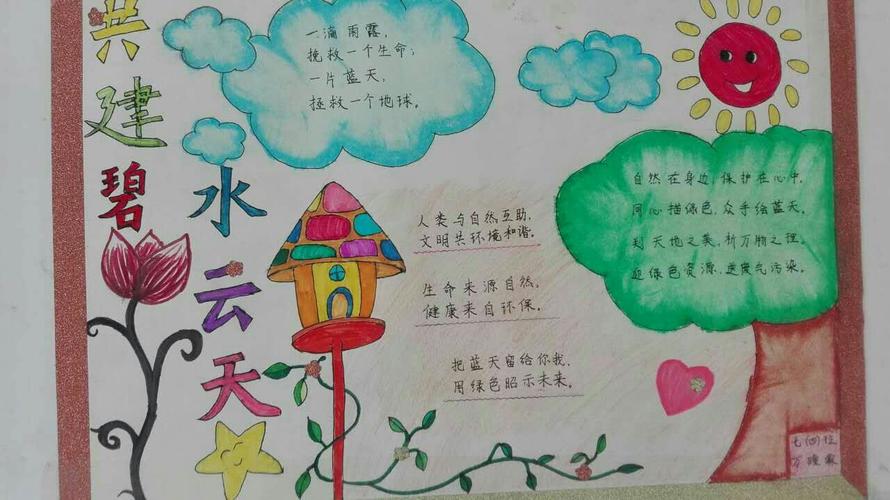 共建碧
水云天
一滴雨露，
挽救一个生命；
一片蓝天，
拯救一个地球。
人类与自然互助，
文明共环境和谐。
生命来源自然，
健康来自环保。
把蓝天留给你我，
用绿色昭示未来。
自然在身边，保护在心中。
同心描绿色，众手绘蓝天。
判天地之美，析万物之理。
迎绿色资源，送废气污染。
七(四)班
万